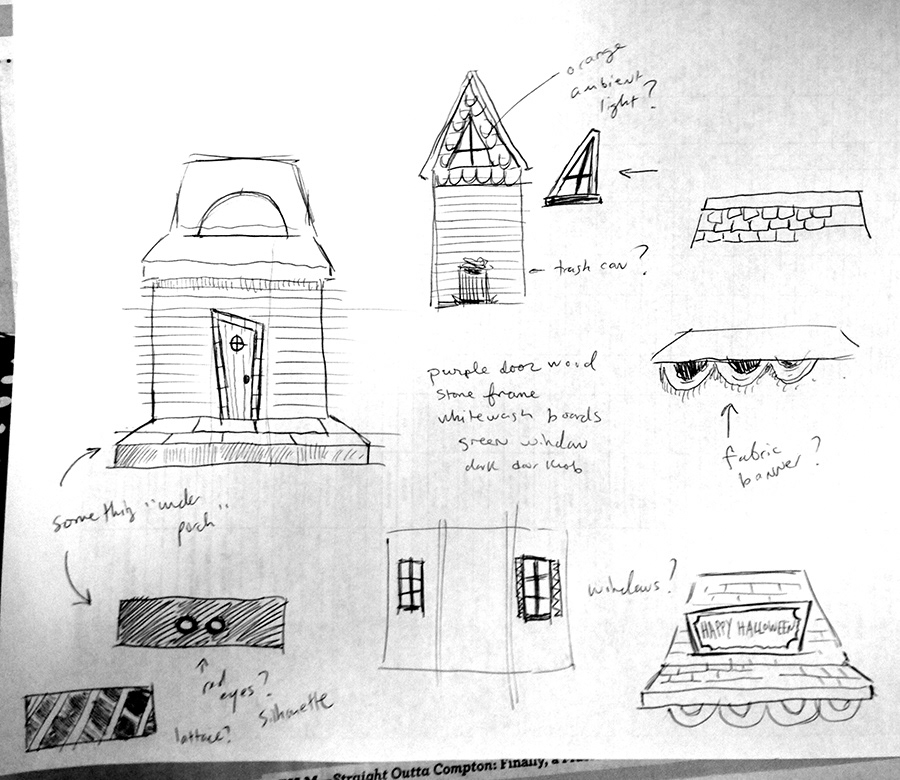 orange
ambient
light?
trash can?
purple door wood
stone frame
whitewash boards
green window
dark door knob
fabric
banner?
something "under
porch"
windows?
HAPPY HALLOWEEN
red
eyes?
silhouette
lattace?
Straight Outta Compton: Finally, a